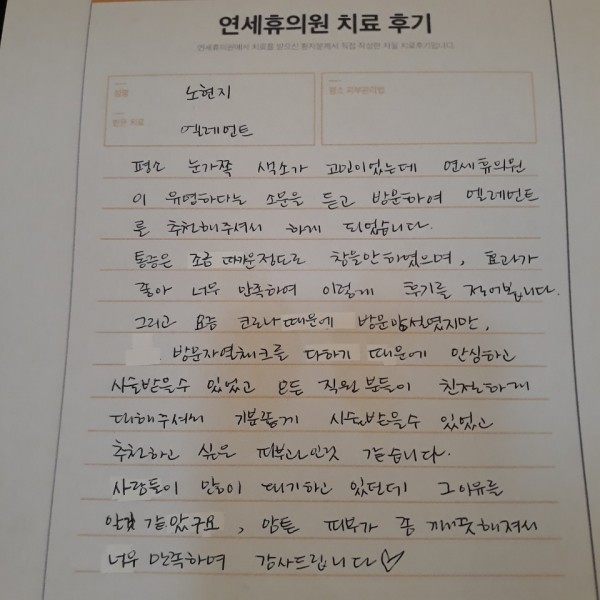 연세휴의원 치료 후기
연세휴의원에서 치료를 받으신 환자분께서 직접 작성한 자필 치료후기입니다.
성명 노현지
평소 피부관리법
받은 치료 엘레먼트
평소 눈가쪽 색소가 고민이었는데 연세휴의원
이 유명하다는 소문을 듣고 방문하여 엘레먼트
를 추천해주셔서 하게 되었습니다.
통증은 조금 따가운정도로 참을만하였으며, 효과가
좋아 너무 만족하여 이렇게 후기를 적어봅니다.
그리고 요즘 코로나때문에 방문망설였지만,
방문자열체크를 다하기 때문에 안심하고
시술받을수 있었고 모든 직원분들이 친절하게
대해주셔서 기분좋게 시술받을수 있었고
추천하고 싶은 피부과인것 같습니다.
사람들이 많이 대기하고 있던데 그이유를
알것 같았구요, 암튼 피부가 좀 깨끗해져서
너무 만족하며 감사드립니다♡